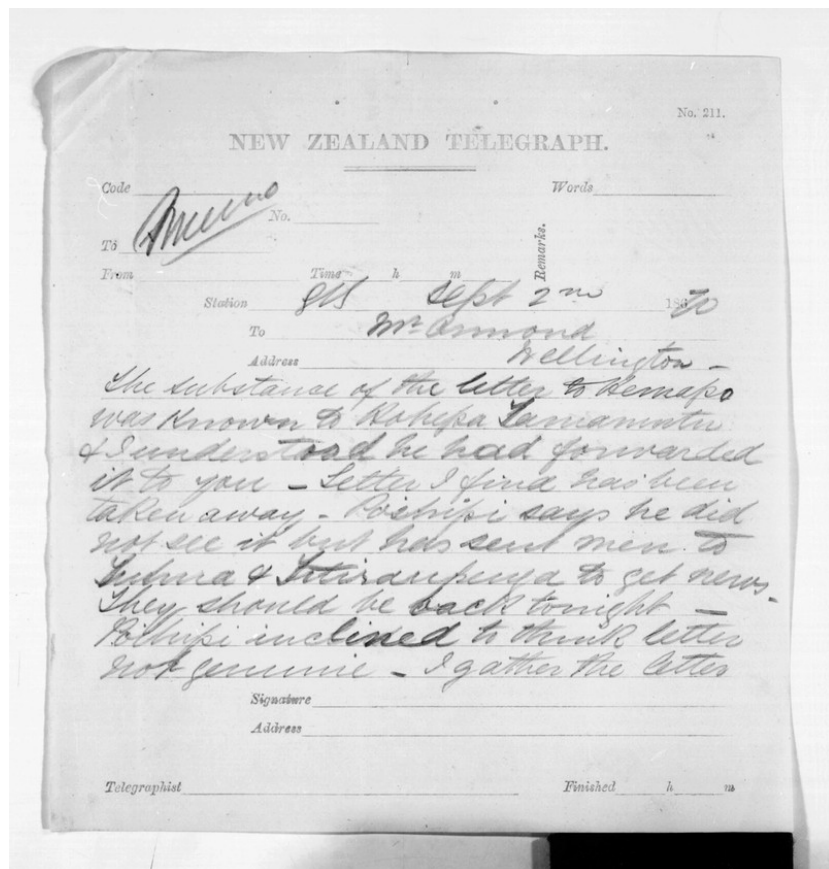 No. 211.
NEW ZEALAND TELEGRAPH.
Code
Words
No.
To
Remarks.
From Time h m
Station Sept 2nd 1870
To Mr Ormond
Address Wellington -
The substance of the letter to Hemapo
was known to Hohepa Tamamutu
& I understood he had forwarded
it to you - Letter I find has been
taken away - Poihipi says he did
not see it but has sent men to
& to get news -
They should be back tonight -
Poihipi inclined to think letter
not genuine - I gather the letter
Signature
Address
Telegraphist Finished h m